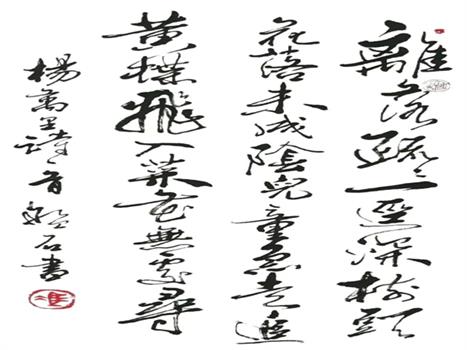 離落疏々一逕深樹頭
花落未成陰兒童急走追
黃蝶飛入菜花無處尋
楊萬里詩石書